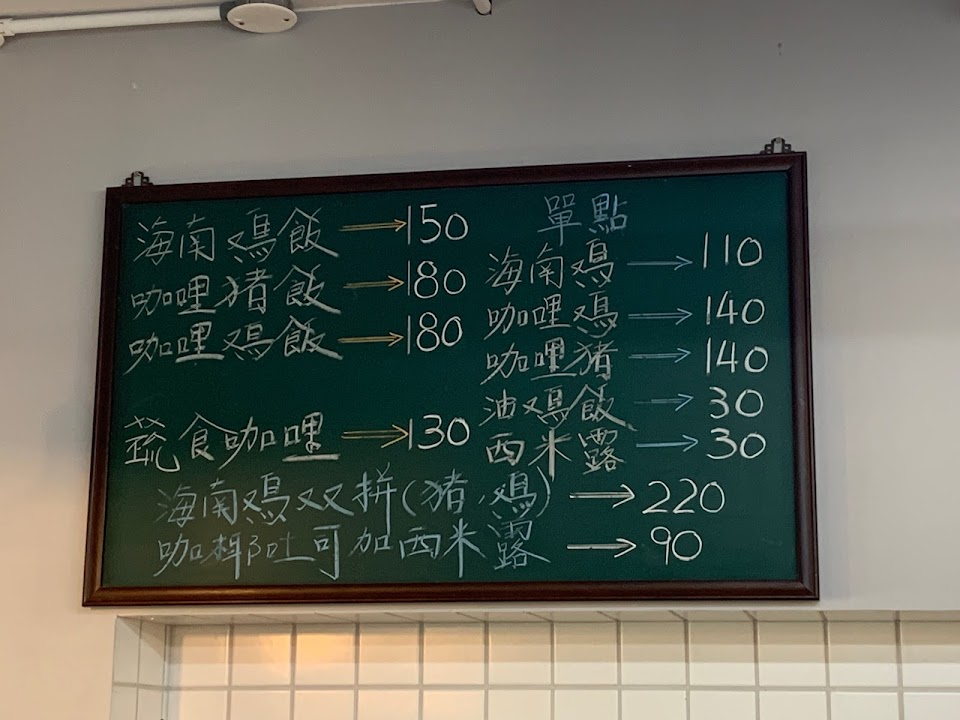 海南鸡飯→150
咖哩猪飯→180
咖哩鸡飯→180
蔬食咖哩→130
單點
海南鸡→110
咖哩鸡→140
咖哩猪→140
油鸡飯→30
西米露→30
海南鸡双拼(猪、鸡)→220
咖椰吐司加西米露→90